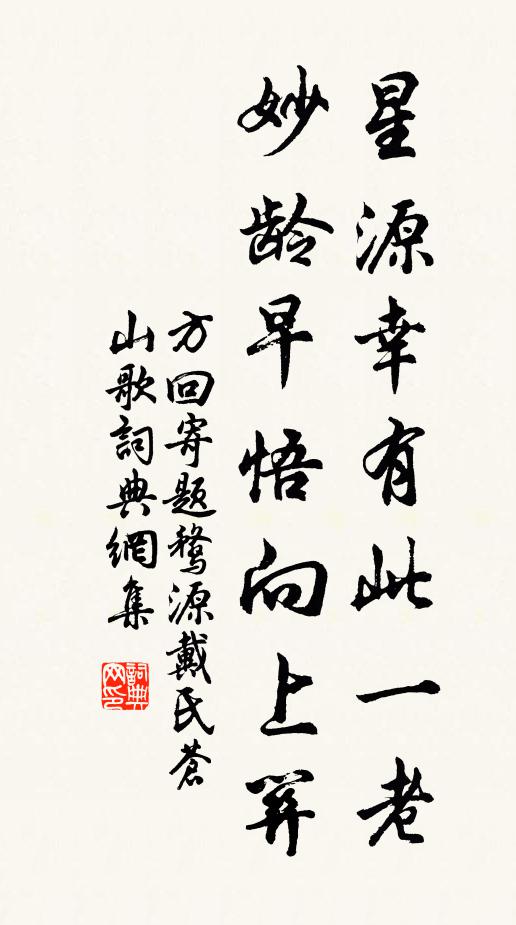 星源幸有此一老
妙龄早悟向上关
方回寄题婺源戴氏苍
山歌詞典網集
詞典網印